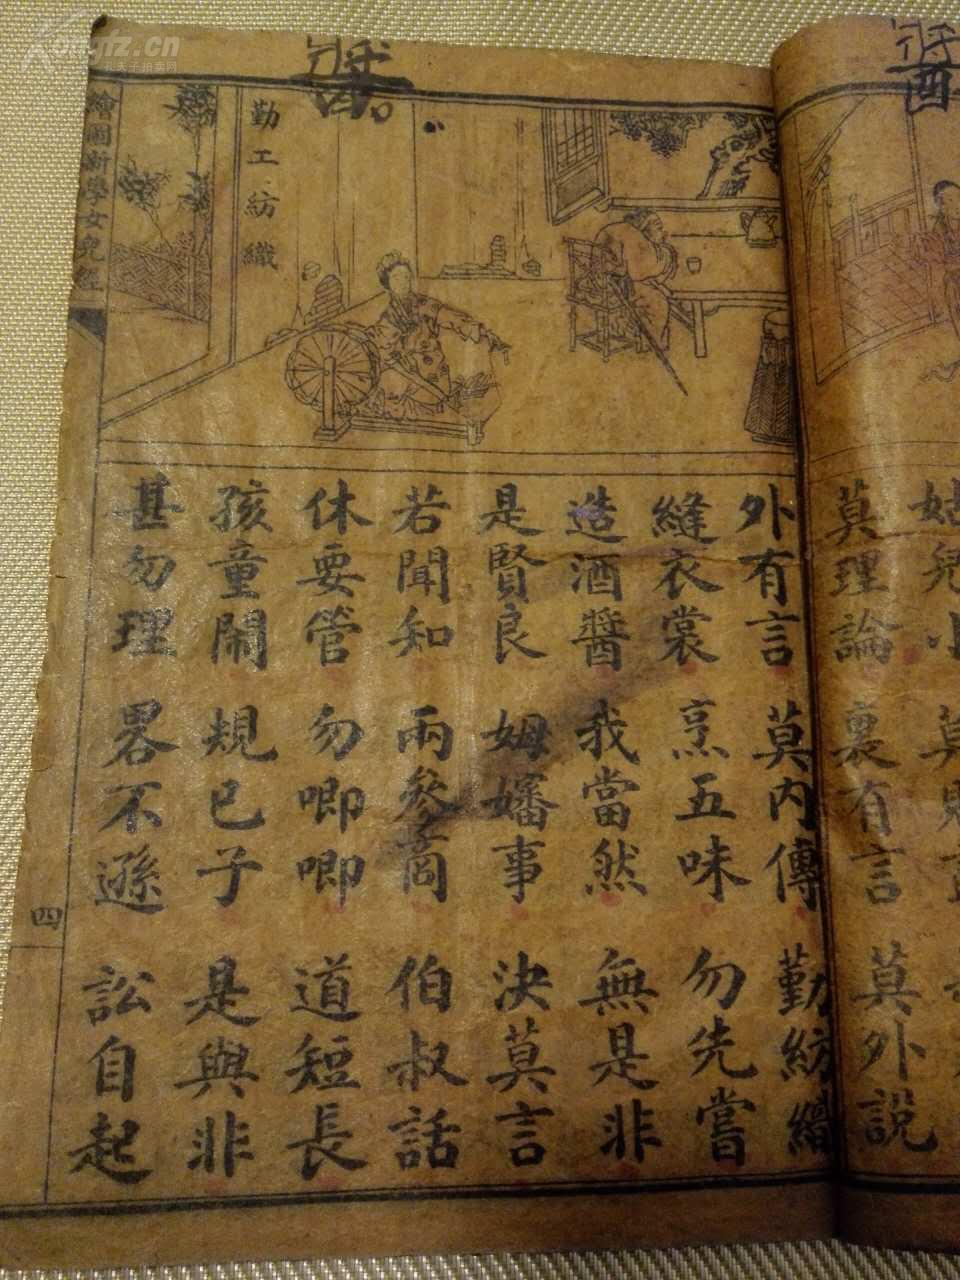 Kongfz.cn
醬
醬
繪圖新學女兒經
四
勤工紡織
姑兒小
莫理論 裏有言 莫外說
外有言 莫内傳 勤紡績
縫衣裳 烹五味 勿先嘗
造酒醬 我當然 無是非
是賢良 姆嬸事 決莫言
若聞知 兩參商 伯叔話
休要管 勿唧唧 道短長
孩童鬧 規已子 是與非
甚勿理 畧不遜 訟自起